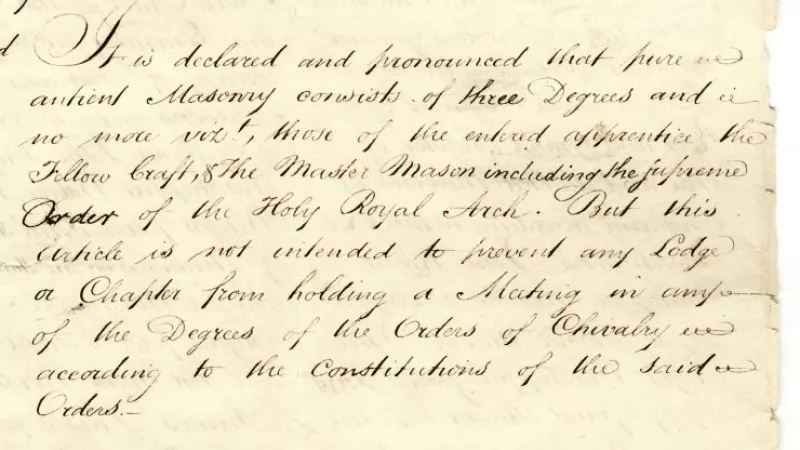 d
It is declared and pronounced that pure
antient Masonry consists of three Degrees and
no more vizt, those of the entered apprentice the
Fellow Craft, & the Master Mason including the supreme
Order of the Holy Royal Arch. But this
Article is not intended to prevent any Lodge
or Chapter from holding a Meeting in any
of the Degrees of the Orders of Chivalry
according to the Constitutions of the said
Orders.—